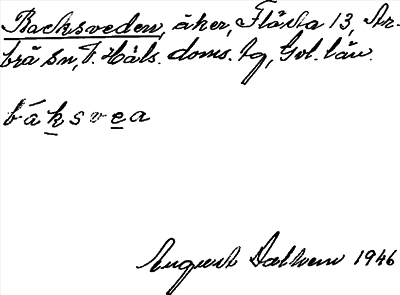 Backsveden, åker, Flästa 13, Ar-
brå sn, F. Häls. doms. tg, Gvl. län.
báksvea
August Dalhem 1946